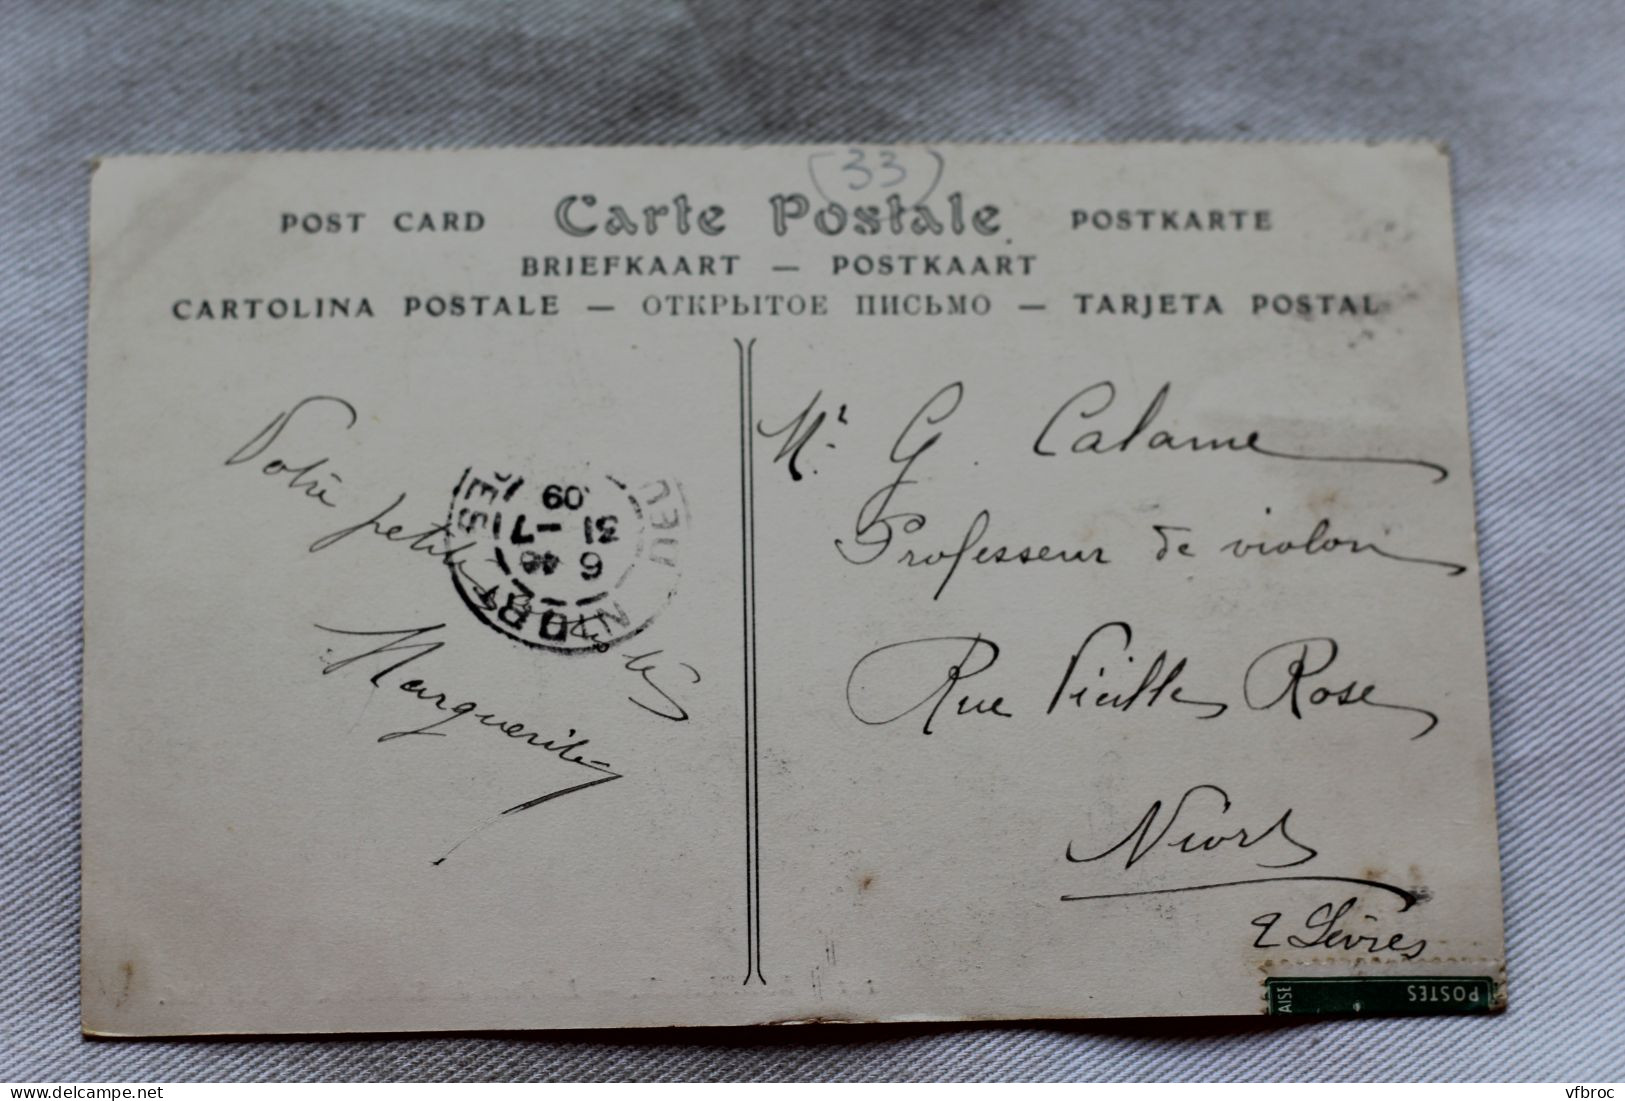 (33)
POST CARD Carte Postale POSTKARTE
BRIEFKAART — POSTKAART
CARTOLINA POSTALE — ОТКРЫТОЕ ПИСЬМО — TARJETA POSTAL
Votre petite
Marguerite
NIORT
6 48
31 -7
09
Mr. G. Calame
Professeur de violon
Rue Vieille Rose
Niort
2 Sèvres
POSTES
AISE
vfbroc